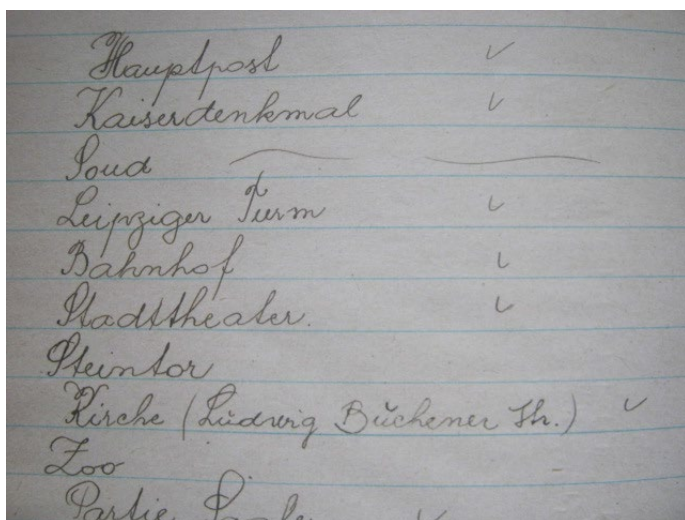 Hauptpost ✓
Kaiserdenkmal ✓
Leipziger Turm ✓
Bahnhof ✓
Stadttheater. ✓
Steintor
Kirche (Ludwig Büchener Str.) ✓
Zoo
Partie ✓